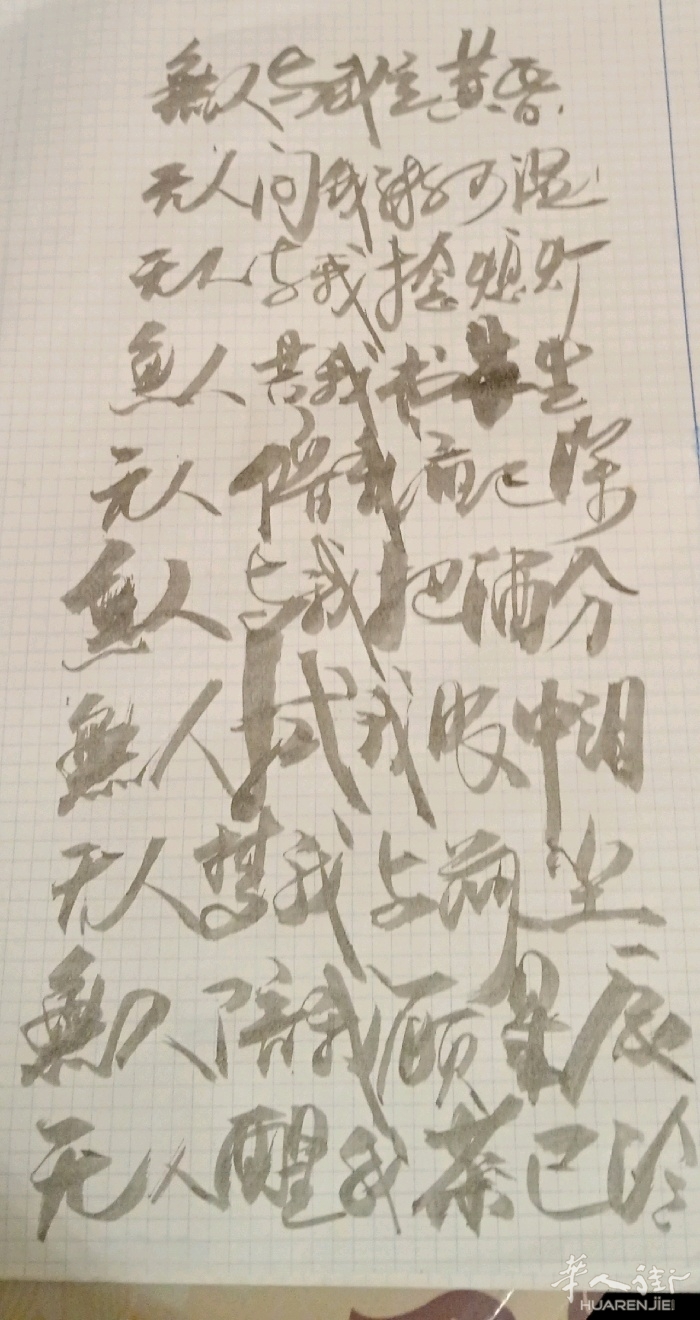 無人与我立黄昏
无人问我粥可温
无人与我捻熄灯
無人共我书半生
无人陪我夜已深
無人与我把酒分
無人拭我眼中泪
无人梦我与前坐
無人陪我顾星辰
无人醒我茶已冷
華人街
HUARENJIE